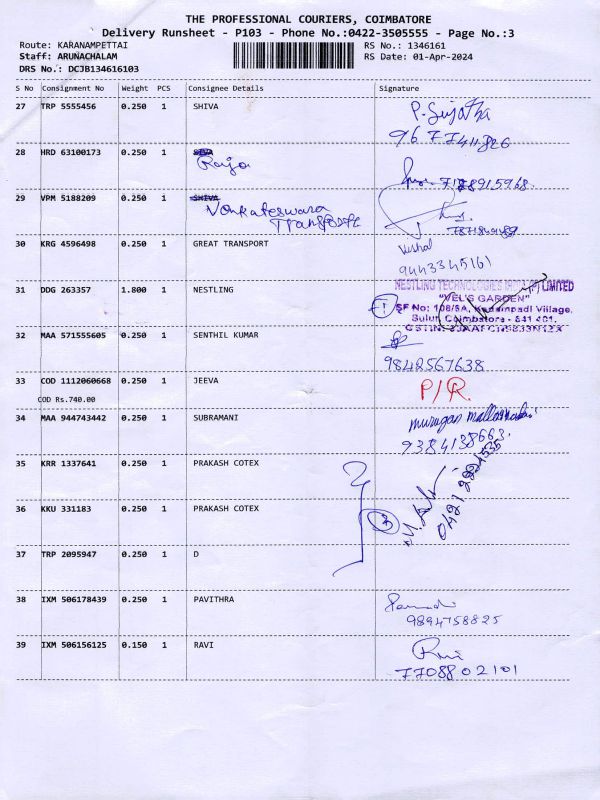 THE PROFESSIONAL COURIERS, COIMBATORE
Delivery Runsheet - P103 - Phone No.:0422-3505555 - Page No.:3
Route: KARANAMPETTAI RS No.: 1346161
Staff: ARUNACHALAM RS Date: 01-Apr-2024
DRS No.: DCJB134616103
S No Consignment No Weight PCS Consignee Details Signature
27 TRP 5555456 0.250 1 SHIVA P. Sujatha
28 HRD 63100173 0.250 1 Raja
29 VPM 5188209 0.250 1 SHIVA
Venkateswara
Transport
30 KRG 4596498 0.250 1 GREAT TRANSPORT Vishal
9443345161
31 DDG 263357 1.800 1 NESTLING NESTLING TECHNOLOGIES INDIA (P) LIMITED
"VEL'S GARDEN"
SF No: 108/5A, Kadampadi Village,
Sulur, Coimbatore - 641 401.
32 MAA 571555605 0.250 1 SENTHIL KUMAR
9842567638
33 COD 1112060668 0.250 1 JEEVA P/R.
COD Rs.740.00
34 MAA 944743442 0.250 1 SUBRAMANI murugan
9384138663.
35 KRR 1337641 0.250 1 PRAKASH COTEX
36 KKU 331183 0.250 1 PRAKASH COTEX
37 TRP 2095947 0.250 1 D
38 IXM 506178439 0.250 1 PAVITHRA
9894758825
39 IXM 506156125 0.150 1 RAVI Ravi
7708802101